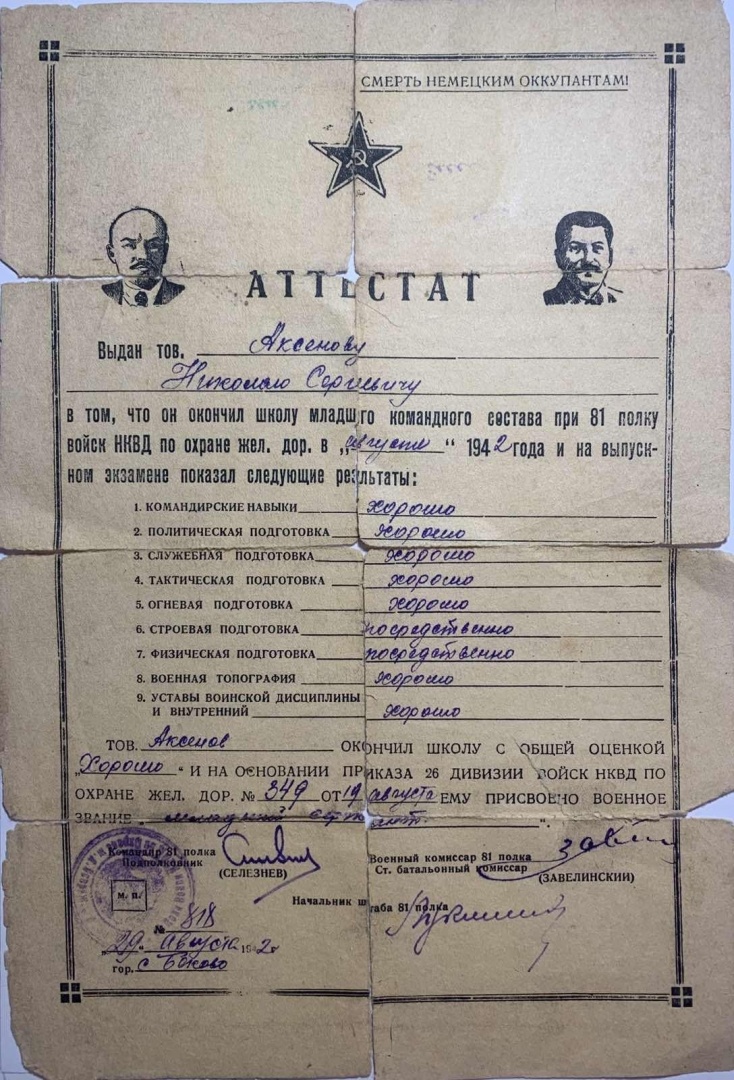 СМЕРТЬ НЕМЕЦКИМ ОККУПАНТАМ!
АТТЕСТАТ
Выдан тов. Аксенову
Николаю Сергеевичу
в том, что он окончил школу младшего командного состава при 81 полку
войск НКВД по охране жел. дор. в „августе“ 1942 года и на выпуск-
ном экзамене показал следующие результаты:
1. КОМАНДИРСКИЕ НАВЫКИ хорошо
2. ПОЛИТИЧЕСКАЯ ПОДГОТОВКА хорошо
3. СЛУЖЕБНАЯ ПОДГОТОВКА хорошо
4. ТАКТИЧЕСКАЯ ПОДГОТОВКА хорошо
5. ОГНЕВАЯ ПОДГОТОВКА хорошо
6. СТРОЕВАЯ ПОДГОТОВКА посредственно
7. ФИЗИЧЕСКАЯ ПОДГОТОВКА посредственно
8. ВОЕННАЯ ТОПОГРАФИЯ хорошо
9. УСТАВЫ ВОИНСКОЙ ДИСЦИПЛИНЫ
И ВНУТРЕННИЙ хорошо
ТОВ. Аксенов ОКОНЧИЛ ШКОЛУ С ОБЩЕЙ ОЦЕНКОЙ
„Хорошо“ И НА ОСНОВАНИИ ПРИКАЗА 26 ДИВИЗИИ ВОЙСК НКВД ПО
ОХРАНЕ ЖЕЛ. ДОР. № 349 ОТ 19 августа ЕМУ ПРИСВОЕНО ВОЕННОЕ
ЗВАНИЕ „младший сержант“.
Командир 81 полка
Подполковник
(СЕЛЕЗНЕВ)
Военный комиссар 81 полка
Ст. батальонный комиссар
(ЗАВЕЛИНСКИЙ)
Начальник штаба 81 полка
М. П.
№ 818
29 Августа 1942 г
гор. с